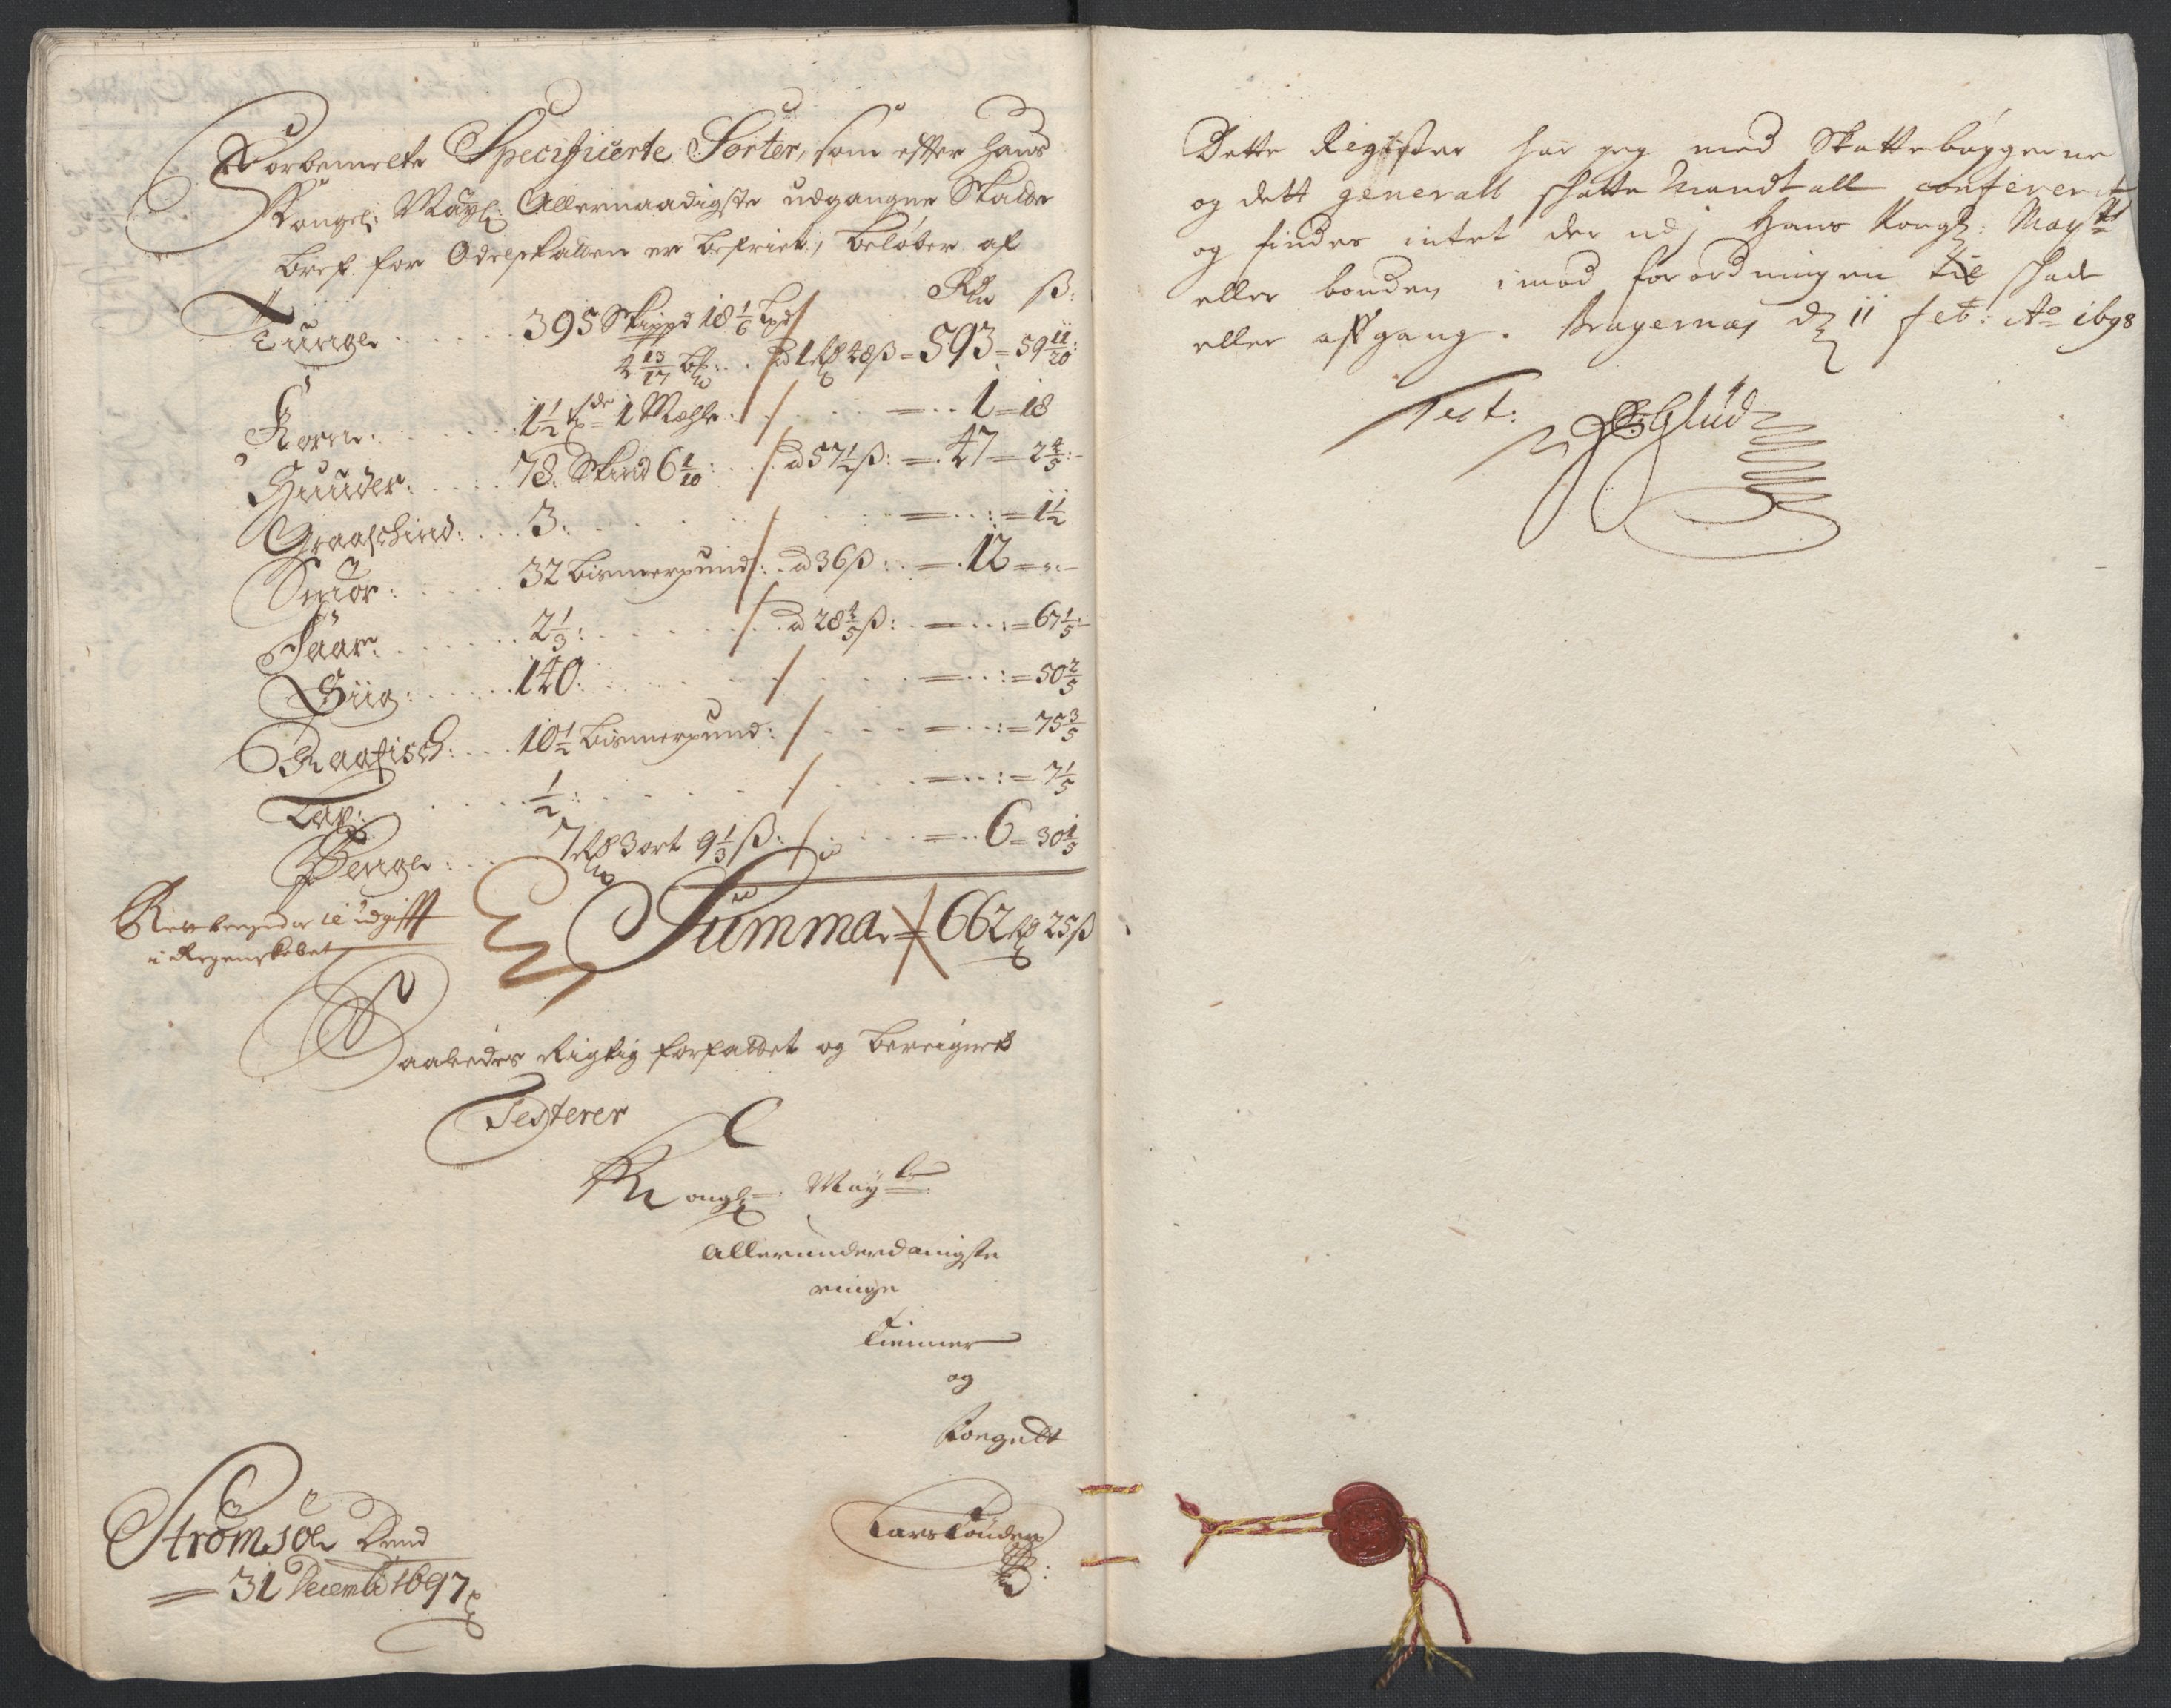 Forbemelte Specificerte Sorter, som effter hans
Kongel: Mayᵗˢ: Allernaadigste udgangne Skatte
bref for Odelskatten er befriet, beløber af
Rdr ß:
Tunge ...... 395 Skippd 18 1/6 Lpd
2 13/17 ... à 1 Rd 48 ß = 593 = 59 11/20:
Korn: ...... 1 1/2 tde 1 Mæhle: = .. 1 = 18
Huuder: ..... 78. Skind 6 1/10: ... à 57 1/2 ß: = . 47 = 2 4/5:
Graaschind: ... 3: = .. : = 1 1/2
Smør: ..... 32 bismerpund: . à 36 ß: = . 12 = „:
Faar: ...... 2 1/3: à 28 4/5 ß: = .. : = 67 1/5:
Siig: ..... 140: = .. : = 50 2/5
Raafisch: ... 10 1/2 bismerpund: = .. : = 75 3/5
Lax: ..... 1/2: = .. : = 7 1/5
Penge: ... 7 Rd 3 ort 9 1/3 ß: = .. 6 = 30 1/5
Summa = 662 Rd 25 ß
udgifft
i Regenskabet
Saaledes Rigtig forfattet og beregnet
Testerer
Kongl: Mayᵗˢ
allerunderdanigste
ringe
tienner
og
Foegett
Lars Tønder
Strømsøe Dend
= 31 Decemb: 1697
Dette Register har jeg med Skattebøygerne
og dett generall schatte Mandtall confererit
og findes intet der udj Hans Kongl: Mayᵗˢ
eller bonden imod forordningen til schade
eller affgang. Bragernæs d 11 feb: Ao 1698
Test:
Glud